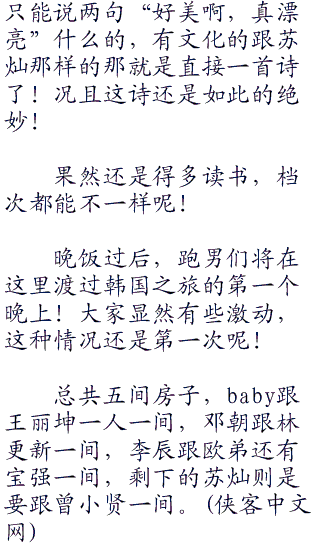 只能说两句“好美啊，真漂
亮”什么的，有文化的跟苏
灿那样的那就是直接一首诗
了！况且这诗还是如此的绝
妙！
果然还是得多读书，档
次都能不一样呢！
晚饭过后，跑男们将在
这里渡过韩国之旅的第一个
晚上！大家显然有些激动，
这种情况还是第一次呢！
总共五间房子，baby跟
王丽坤一人一间，邓朝跟林
更新一间，李辰跟欧弟还有
宝强一间，剩下的苏灿则是
要跟曾小贤一间。(侠客中文
网)